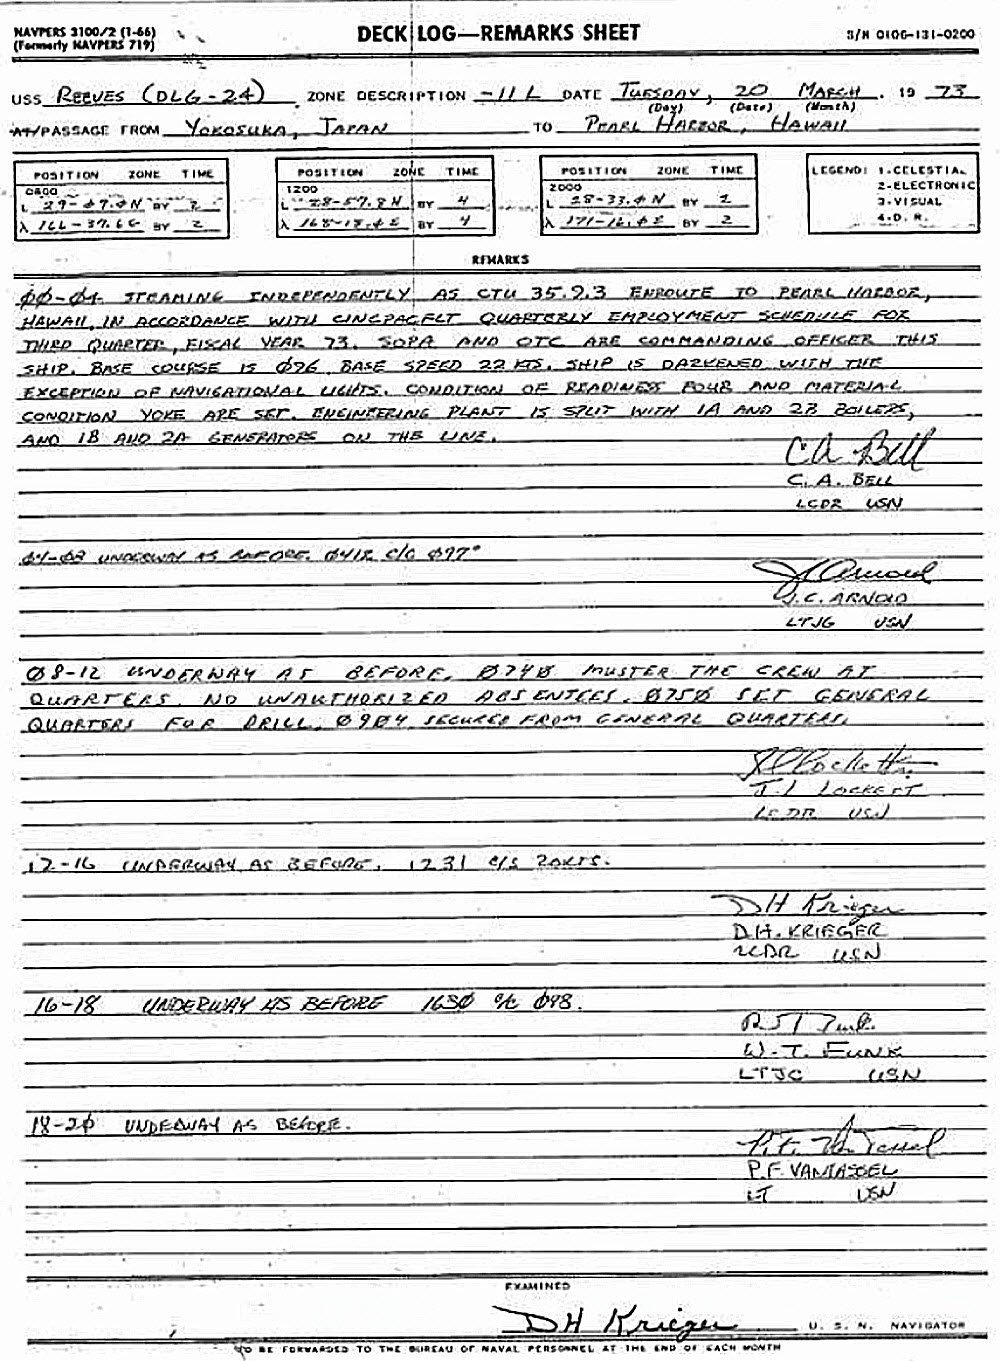 NAVPERS 3100/2 (1-66)
(Formerly NAVPERS 719)
DECK LOG—REMARKS SHEET
S/N 0106-131-0200
USS REEVES (DLG-24) ZONE DESCRIPTION -11 L DATE TUESDAY, 20 MARCH, 19 73
(Day) (Date) (Month)
AT/PASSAGE FROM YOKOSUKA, JAPAN TO PEARL HARBOR, HAWAII
POSITION ZONE TIME
0800
L 29-07.0N BY 2
λ 166-39.6E BY 2
POSITION ZONE TIME
1200
L 28-57.8N BY 4
λ 168-18.0E BY 4
POSITION ZONE TIME
2000
L 28-33.0N BY 2
λ 171-16.0E BY 2
LEGEND: 1-CELESTIAL
2-ELECTRONIC
3-VISUAL
4-D. R.
REMARKS
ØØ-Ø4 STEAMING INDEPENDENTLY AS CTU 35.9.3 ENROUTE TO PEARL HARBOR,
HAWAII, IN ACCORDANCE WITH CINCPACFLT QUARTERLY EMPLOYMENT SCHEDULE FOR
THIRD QUARTER, FISCAL YEAR 73. SOPA AND OTC ARE COMMANDING OFFICER THIS
SHIP. BASE COURSE IS Ø96 BASE SPEED 22 KTS. SHIP IS DARKENED WITH THE
EXCEPTION OF NAVIGATIONAL LIGHTS. CONDITION OF READINESS FOUR AND MATERIAL
CONDITION YOKE ARE SET. ENGINEERING PLANT IS SPLIT WITH 1A AND 2B BOILERS,
AND 1B AND 2A GENERATORS ON THE LINE.
CA Bell
C. A. BELL
LCDR USN
Ø4-Ø8 UNDERWAY AS BEFORE. Ø418 C/C Ø97°
JC Arnold
J.C. ARNOLD
LTJG USN
Ø8-12 UNDERWAY AS BEFORE. Ø74Ø MUSTER THE CREW AT
QUARTERS. NO UNAUTHORIZED ABSENTEES. Ø75Ø SET GENERAL
QUARTERS FOR DRILL. Ø9Ø4 SECURED FROM GENERAL QUARTERS.
J L Lockett
J. L LOCKETT
LCDR USN
12-16 UNDERWAY AS BEFORE. 1231 C/S 20KTS.
DH Krieger
D.H. KRIEGER
LCDR USN
16-18 UNDERWAY AS BEFORE 165Ø C/C Ø98.
W. T. FUNK
LTJG USN
18-2Ø UNDERWAY AS BEFORE.
P.F. VanTassel
P.F. VANTASSEL
LT USN
EXAMINED
DH Krieger U. S. N. NAVIGATOR
TO BE FORWARDED TO THE BUREAU OF NAVAL PERSONNEL AT THE END OF EACH MONTH